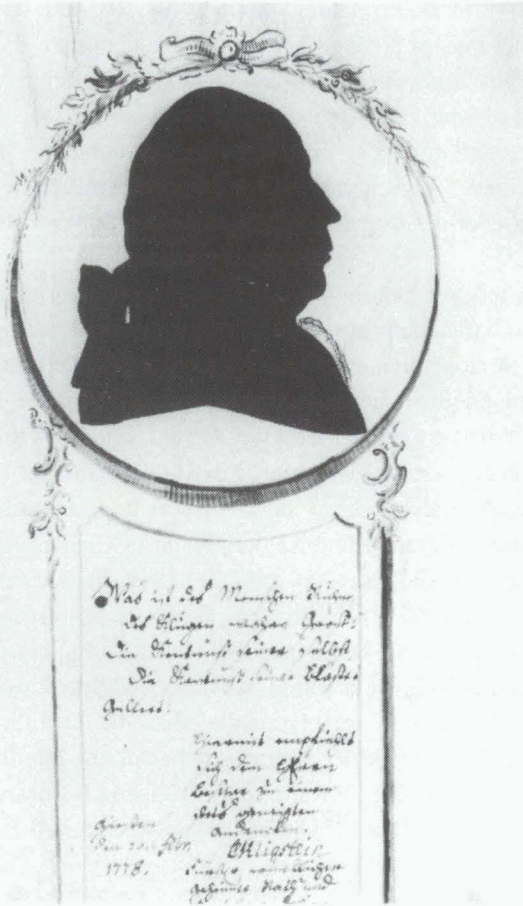 Was ist des Menschen Ruhm,
des Klugen wahre Größe?
Die Kentniß seiner selbst
Die Kentniß seiner Blöße
Gellert.
hiermit empfiehlt
sich dem Herrn
Besitzer zu einem
stets geneigten
Andencken.
Giesen
den Febr.
1778.
Geheimer Rath und